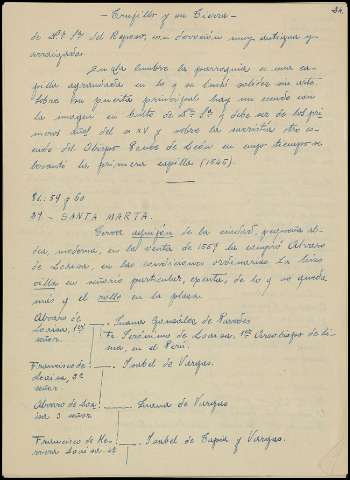 - Trujillo y su Tierra -
de Nª Sª del Reposo, con devoción muy antigua y
arraigada.
En la Cumbre la parroquia es una ca-
pilla agrandada en lo y su limbo
sobre su puerta principal hay un escudo con
la imagen en busto de Nª Sª y debe ser de los pri-
meros años del s. XV y sobre la sacristía otro es-
cudo del Obispo Ponce de León en cuyo tiempo se
levantó la primera capilla (1565).
Ll. 59 y 60
27.- SANTA MARTA.
Como de la ciudad, pequeña al-
dea, moderna, en la venta de 1559 la compró Alvaro
de Loaisa, en las condiciones ordinarias. La hizo
villa en señorío particular, exenta, de lo y no queda
mas q el rollo en la plaza.
Alvaro de Loaisa, 1er señor. Juana González de Paredes
Fr Jerónimo de Loaisa, 1er Arzobispo de Li-
ma, en el Perú.
Francisco de Loaisa, 2º señor. Isabel de Vargas.
Alvaro de Loaisa 3 señor. Juana de Vargas
Francisco de Herrera Loaisa 4º Isabel de Tapia y Vargas.